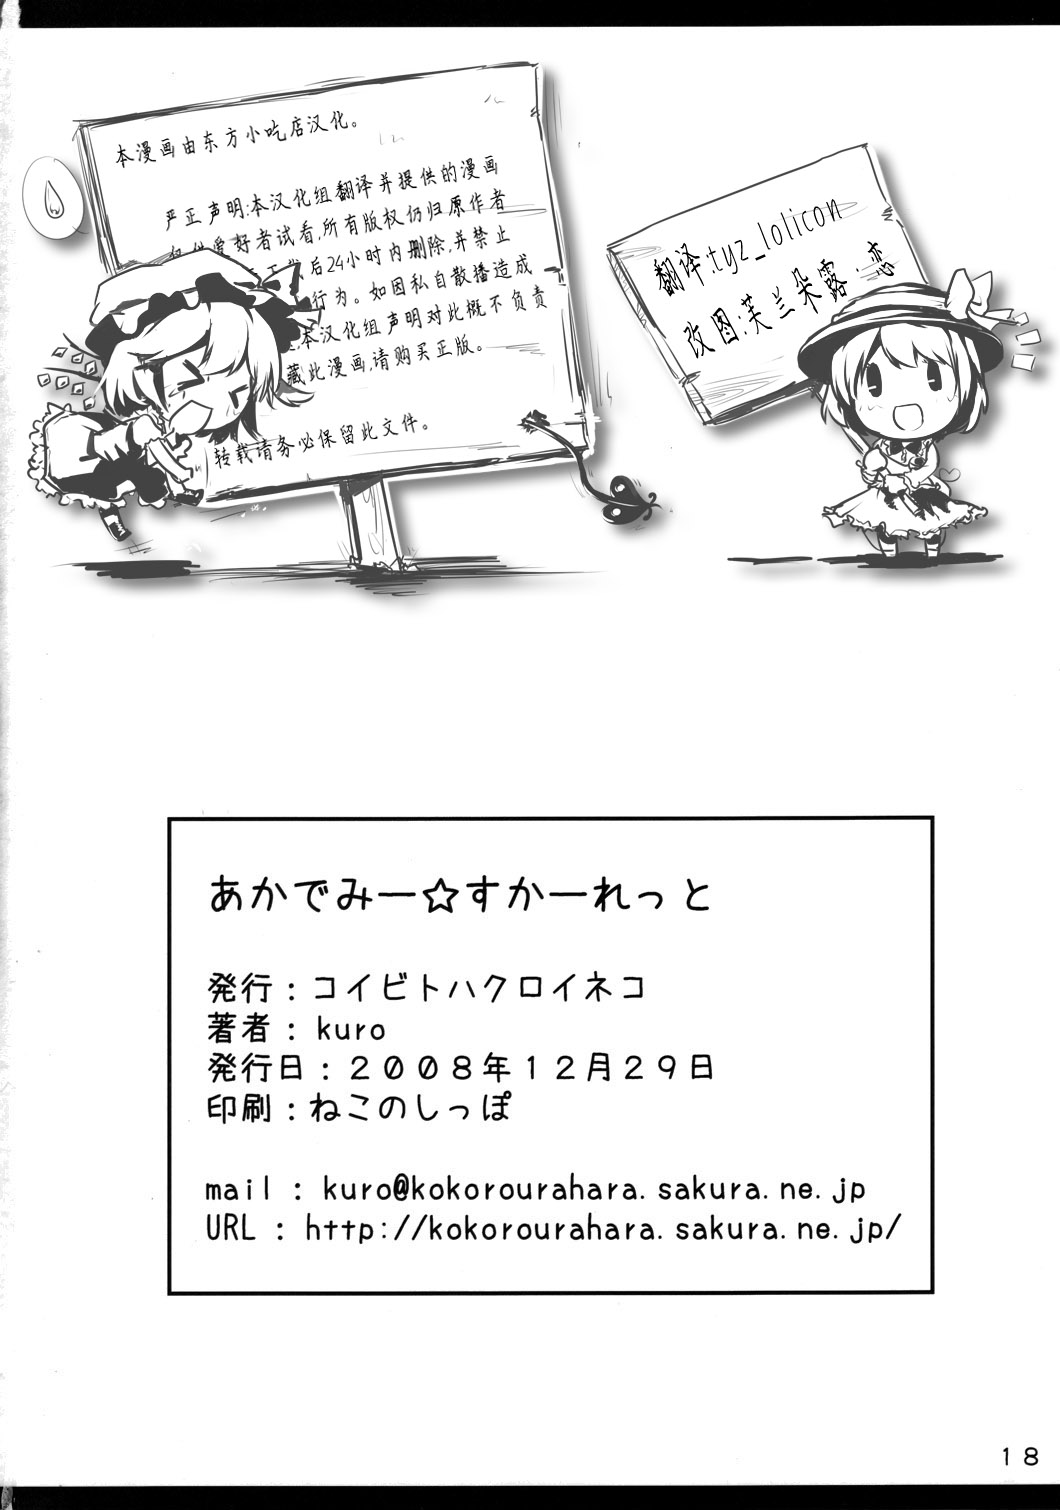 本漫画由东方小吃店汉化。
严正声明:本汉化组翻译并提供的漫画
仅供爱好者试看,所有版权仍归原作者
后24小时内删除,并禁止
行为。如因私自散播造成
本汉化组声明对此概不负责
藏此漫画,请购买正版。
转载请务必保留此文件。
翻译:tyz_lolicon
改图:芙兰朵露·恋
あかでみー☆すかーれっと
発行：コイビトハクロイネコ
著者：kuro
発行日：２００８年１２月２９日
印刷：ねこのしっぽ
mail : kuro@kokorourahara.sakura.ne.jp
URL : http://kokorourahara.sakura.ne.jp/
18